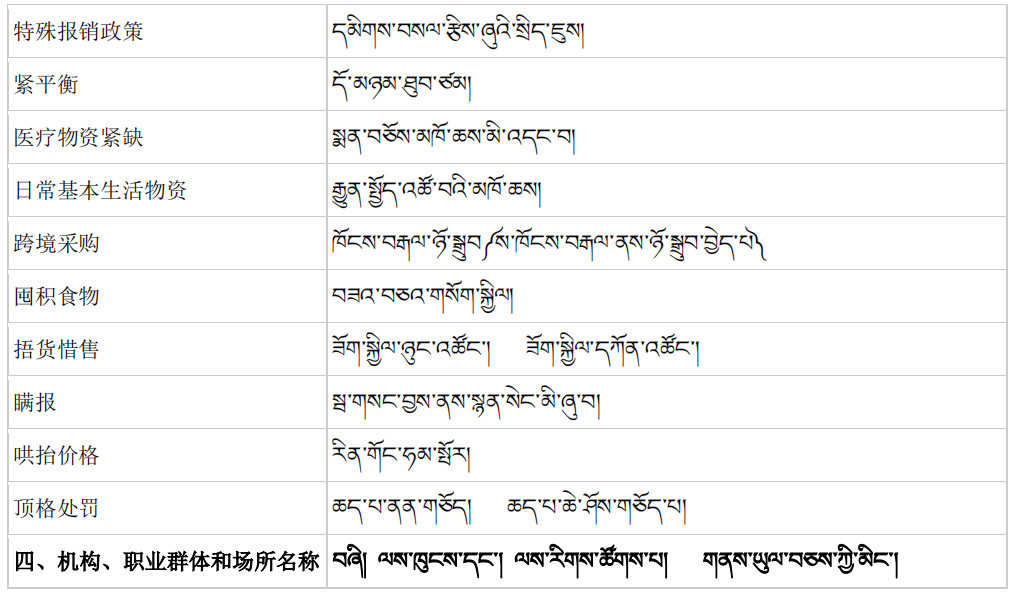 特殊报销政策 དམིགས་བསལ་རྩིས་ཞུའི་སྲིད་ཇུས།
紧平衡 དོ་མཉམ་ཐུབ་ཙམ།
医疗物资紧缺 སྨན་བཅོས་མཁོ་ཆས་མི་འདང་བ།
日常基本生活物资 རྒྱུན་སྤྱོད་འཚོ་བའི་མཁོ་ཆས།
跨境采购 ཁོངས་བརྒལ་ཉོ་སྒྲུབ༼ས་ཁོངས་བརྒལ་ནས་ཉོ་སྒྲུབ་བྱེད་པ༽
囤积食物 བཟའ་བཅའ་གསོག་སྐྱིལ།
捂货惜售 ཟོག་སྐྱིལ་ཉུང་འཚོང་། ཟོག་སྐྱིལ་དཀོན་འཚོང་།
瞒报 སྦ་གསང་བྱས་ནས་སྙན་སེང་མི་ཞུ་བ།
哄抬价格 རིན་གོང་ཧམ་སྤོར།
顶格处罚 ཆད་པ་ནན་གཅོད། ཆད་པ་ཆེ་ཤོས་གཅོད་པ།
四、机构、职业群体和场所名称 བཞི། ལས་ཁུངས་དང་། ལས་རིགས་ཚོགས་པ། གནས་ཡུལ་བཅས་ཀྱི་མིང་།